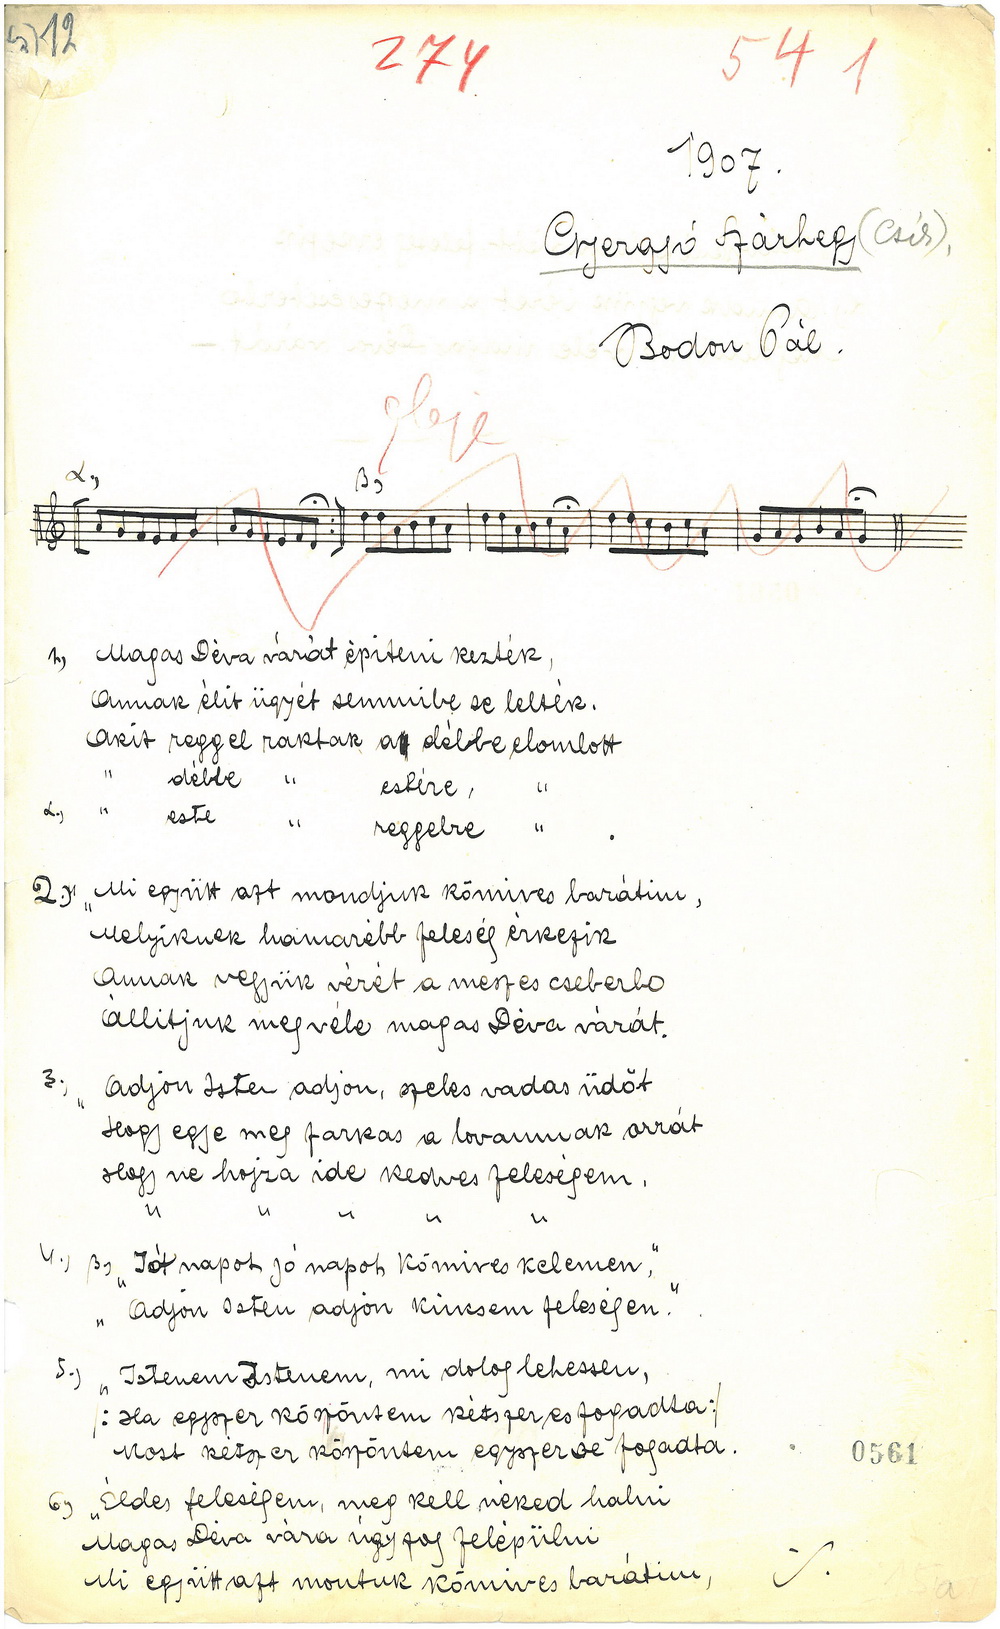 12
274 541
1907.
Gyergyó Szárhegy (Csík).
Bodon Pál.
α,, β,,
1,, Magas Déva várát épiteni kezték,
Annak élit ügyét semmibe se lelték.
Akit reggel raktak a délbe elomlott
" délbe " estére, "
α., " este " reggelre " .
2.,, „Mi együtt azt mondjuk kőmives barátim,
Melyiknek hamarébb feleség érkezik
Annak vegyük vérét a meszes cseberbe
Állitjuk meg véle magas Déva várát.
3., „ Adjon Isten adjon, szeles vadas üdőt
Hogy egje meg farkas a lovamnak orrát
Hogy ne hojza ide kedves feleségem.
" " " " "
4., β,, „Jót napot, jó napot Kőmives kelemen,"
„ Adjon Isten adjon kincsem feleségen."
5., „ Istenem Istenem, mi dolog lehessen,
/: Ha egyszer köszöntem kétszer es fogadta :/
Most kétszer köszöntem egyszer se fogadta.
0561
6,, „Éldes feleségem, meg kell néked halni
Magas Déva vára úgy fog felépülni
Mi együtt azt montuk kőmives barátim,